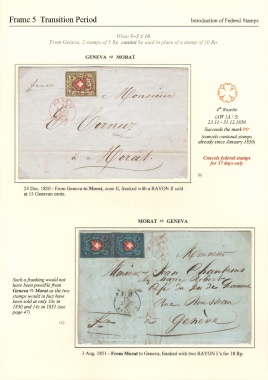 Frame 5 Transition Period
Introduction of Federal Stamps
When 5+5 ≠ 10
From Geneva, 2 stamps of 5 Rp. cannot be used in place of a stamp of 10 Rp.
GENEVA ⇨ MORAT
Monsieur
Morat.
4th Rosette
(AW 1A / 5)
23.11 - 31.12.1850
Succeeds the mark
(cancels cantonal stamps
already since January 1850)
Cancels federal stamps
for 37 days only
24 Dec. 1850 - From Geneva to Morat, zone II, franked with a RAYON II sold
at 15 Genevan cents.
MORAT ⇨ GENEVA
Such a franking would not
have been possible from
Geneva ⇨ Morat as the two
stamps would in fact have
been sold at only 10c in
1850 and 14c in 1851 (see
page 47)
Monsieur
Monsieur Jean
Genève
3 Aug. 1851 - From Morat to Geneva, franked with two RAYON I's for 10 Rp.